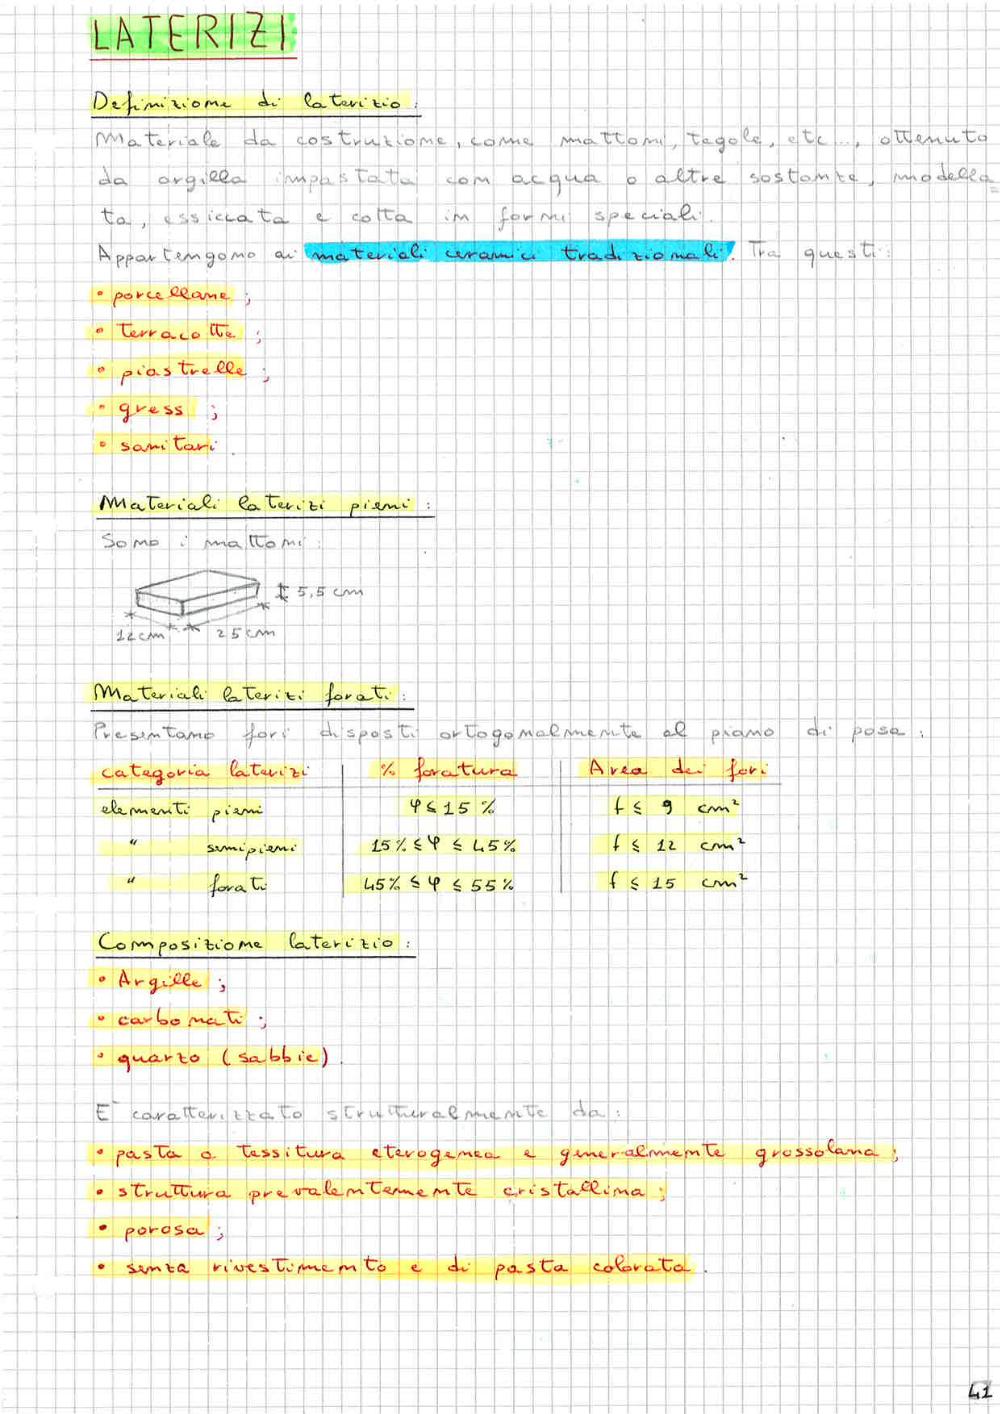 LATERIZI
Definizione di laterizio:
Materiale da costruzione, come mattoni, tegole, etc..., ottenuto
da argilla impastata con acqua o altre sostanze, modella=
ta, essiccata e cotta in forni speciali.
Appartengono ai materiali ceramici tradizionali. Tra questi:
• porcellane;
• terracotte;
• piastrelle;
• gress;
• sanitari.
Materiali laterizi pieni:
Sono i mattoni:
5,5 cm
12cm 25cm
Materiali laterizi forati:
Presentano fori disposti ortogonalmente al piano di posa:
categoria laterizi % foratura Area dei fori
elementi pieni φ ≤ 15% f ≤ 9 cm²
" semipieni 15% ≤ φ ≤ 45% f ≤ 12 cm²
" forati 45% ≤ φ ≤ 55% f ≤ 15 cm²
Composizione laterizio:
• Argille;
• carbonati;
• quarzo (sabbie).
E' caratterizzato strutturalmente da:
• pasta o tessitura eterogenea e generalmente grossolana;
• struttura prevalentemente cristallina;
• porosa;
• senza rivestimento e di pasta colorata.
41